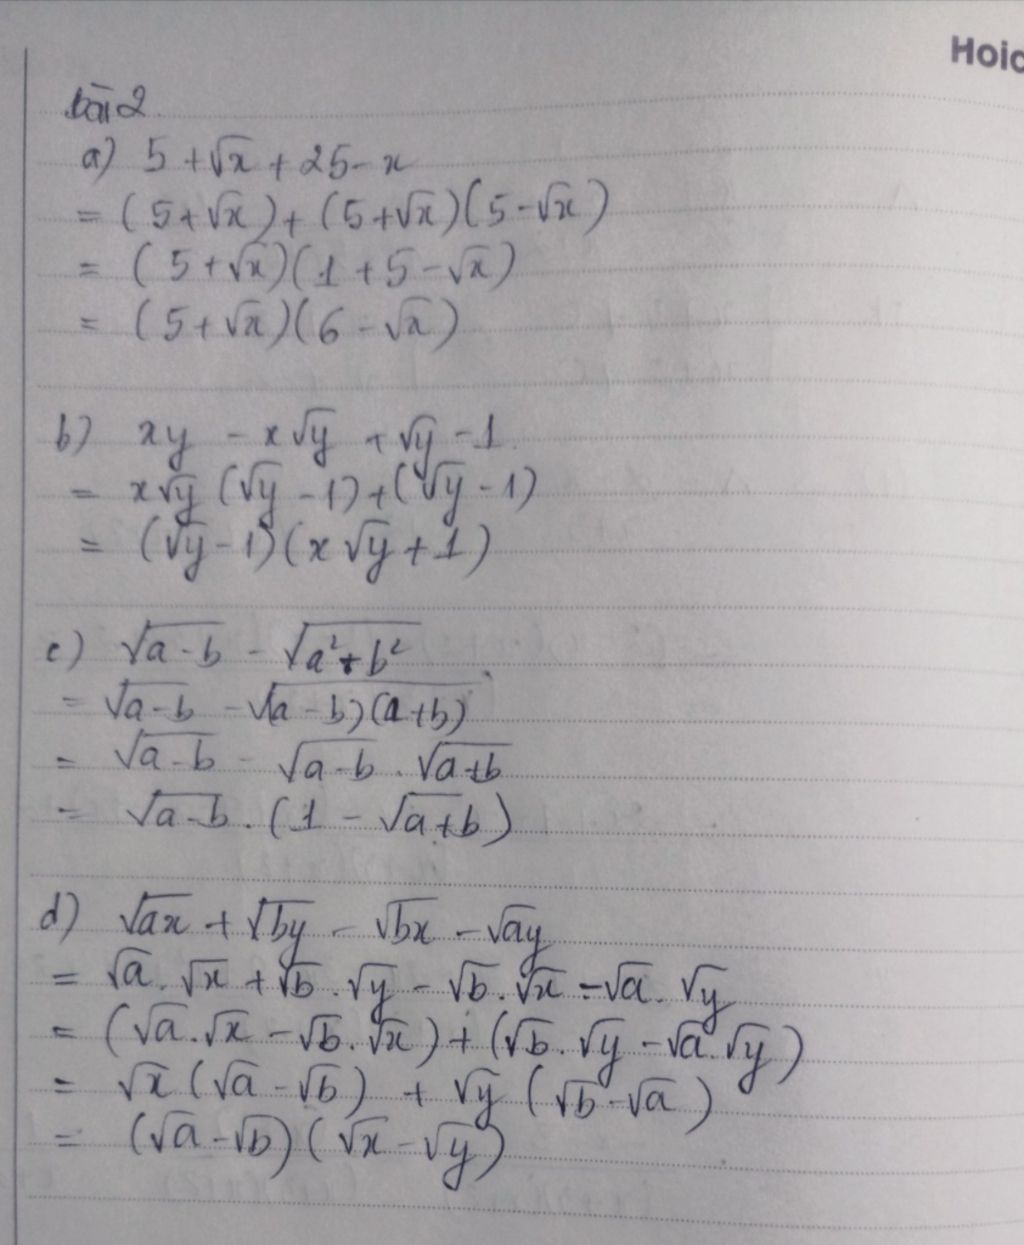 Hoic
bài 2.
a) 5 + √x + 25 - x
= (5 + √x) + (5 + √x)(5 - √x)
= (5 + √x)(1 + 5 - √x)
= (5 + √x)(6 - √x)
b) xy - x√y + √y - 1
= x√y (√y - 1) + (√y - 1)
= (√y - 1)(x√y + 1)
c) √(a-b) - √(a² + b²)
= √(a-b) - √((a-b)(a+b))
= √(a-b) - √(a-b) . √(a+b)
= √(a-b) . (1 - √(a+b))
d) √(ax) + √(by) - √(bx) - √(ay)
= √a . √x + √b . √y - √b . √x - √a . √y
= (√a . √x - √b . √x) + (√b . √y - √a . √y)
= √x (√a - √b) + √y (√b - √a)
= (√a - √b)(√x - √y)